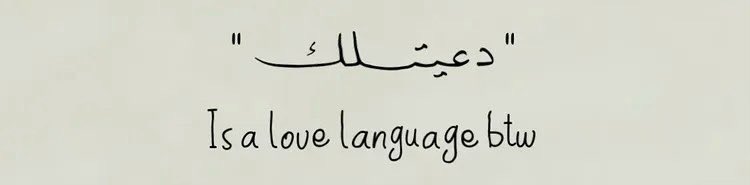 "دعيتلك"
Is a love language btw